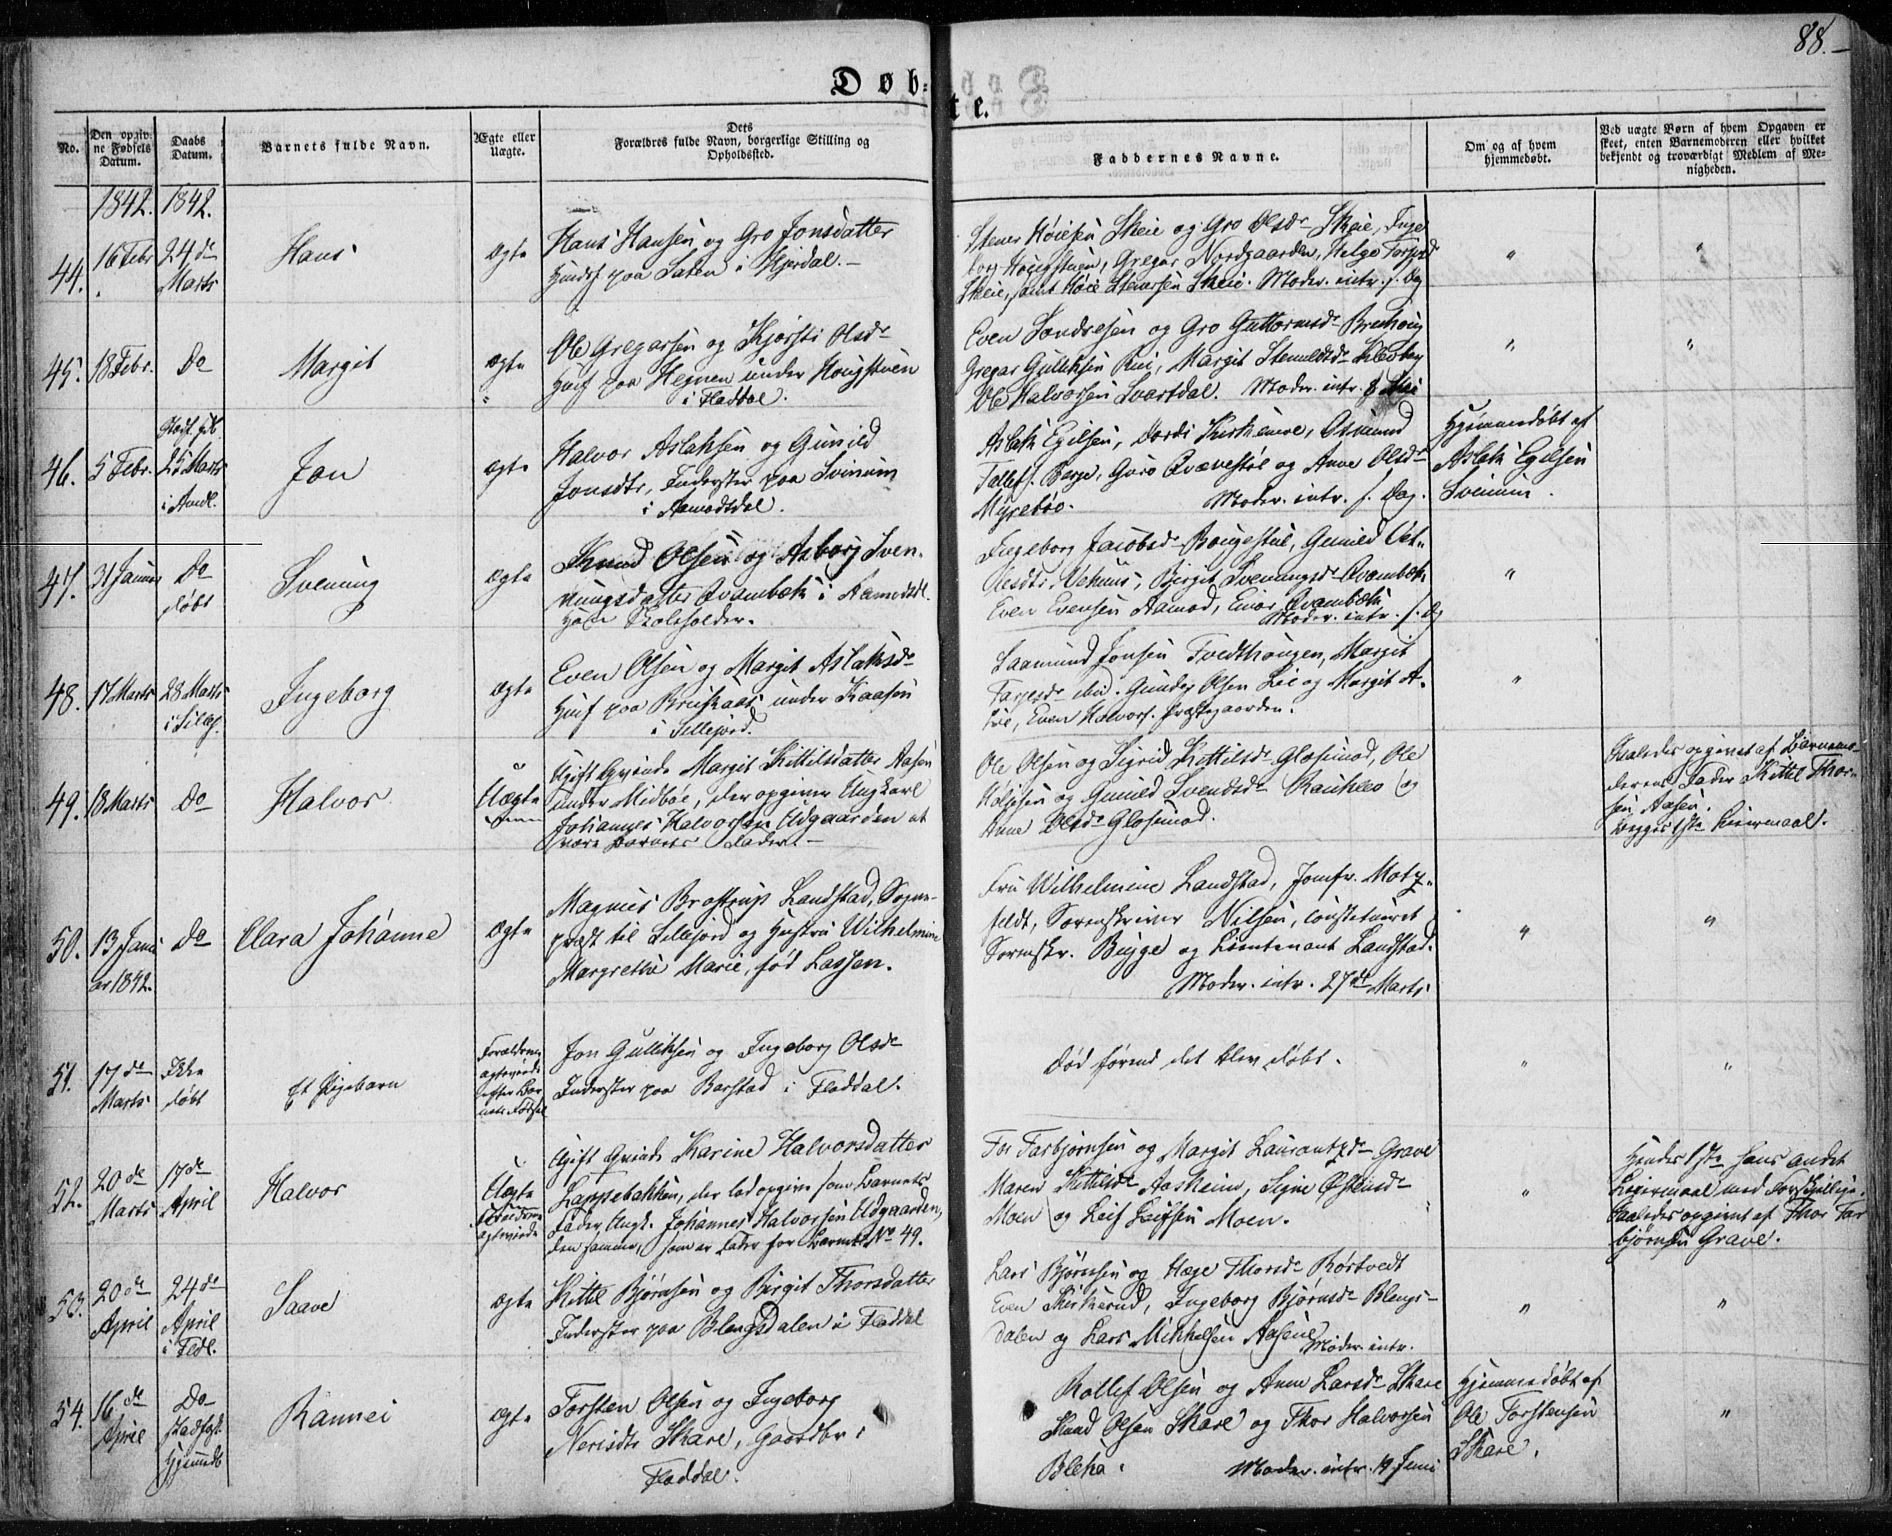 88.
Døbte.
No.
Den opgivne Fødsels Datum.
Daabs Datum.
Barnets fulde Navn.
Ægte eller Uægte.
Dets Forældres fulde Navn, borgerlige Stilling og Opholdssted.
Faddernes Navne.
Om og af hvem hjemmedøbt.
Ved uægte Børn af hvem Opgaven er skeet, enten Barnemoderen eller hvilket bekjendt og troværdigt Medlem af Menigheden.
1842. 1842.
44. 16 Febr. 24de Marts
Hans
ægte
Hans Hansen og Gro Jonsdatter
paa Saten i Hjerdal.
Stener Høiesen Skeie og Gro Olsdr Skeie, Inge
borg Hougstuen, Gregar Nordgaarden, Helge
Skeie, samt Høie Stenersen Skeie. Moder. intr. s. Dag
45. 18 Febr. Do
Margit
ægte
Ole Gregarsen og Kjersti Olsdr
Huusf paa Hegnen under Hougstuen
i Fladdal.
Even Sondresen og Gro Guttormsdr
Gregar Gulliksen Rui, Margit
Ole Halvorsen Svartdal. Moder. intr.
46. 5 Febr. 25 Marts
i Amdl.
Jon
ægte
Halvor Aslaksen og Gunild
Jonsdtr, Inderster paa Svinum
i Aamodtdal.
Aslak Egilsen, Dordi Kirkemoe, Osmund
Tallef s. Berge, Guro Qvævestøl og Anne Olsdr
Myrebøe. Moder. intr. s. Dag.
Hjemmedøbt af
Aslak Egilsen
Svinum.
47. 31 Januar Do
døbt
Svenung
ægte
Knud Olsen og Asborg Sven-
nungsdatter Qvambæk i Aamodsdl.
Skoleholder.
Ingeborg Jacobsdr Bougestøl, Gunild
Vehuus, Birgit Svenungsdr Qvambæk
Even Evensen Aamod, Einar Qvambæk
Moder. intr. s. Dg
48. 17 Marts 28 Marts
i Sillej.
Ingeborg
ægte
Even Olsen og Margit Aslaksdr
Huusf paa Bruskaas under Kaasen
i Sillejord.
Saamund Jonsen Tvedthougen, Margit
Tarjesdr ibid. Gunder Olsen Lie og Margit
Lie, Even Halvors. Præstegaarden.
49. 18 Marts Do
Halvor
Uægte
Ugift Qvinde Margit Kittilsdatter Aasen
under Midbøe, der opgiver Ungkarl
Johannes Halvorsen Udgaarden at
være Barnets Fader.
Ole Olsen og Sigrid Kettilsdr Glosimod, Ole
og Gunild Svendsdr Raukleo og
Anne Olsdr Glosimod.
Saaledes opgivet af Barnemo-
derens Fader Kittel Thor-
sen Aasen.
Begges 1ste Leiermaal.
50. 13 Janu
ar 1842. Do
Clara Johanne
ægte
Magnus Brostrup Landstad, Sogne-
præst til Sillejord og Hustru Wilhelmine
Margrethe Marie, fød Lassen.
Fru Wilhelmine Landstad, Jomfr. Motz-
feldt, Sorenskriver Nilsen, constitueret
Sorenskr. Bugge og Lieutenant Landstad.
Moder. intr. 27de Marts
51. 17de
Marts Ikke
døbt
Et Pigebarn
Forældrene
ægteviede
efter Bar-
nets Fødsel
Jon Gulliksen og Ingeborg Olsdr
Inderster paa Barstad i Fladdal.
Død førend det blev døbt.
52. 20de
Marts 17de
April
Halvor
Uægte
Forældrene
ægteviede
Ugift Qvinde Karine Halvorsdatter
Lappebakken, der lod opgive som Barnets
Fader Ungk. Johannes Halvorsen Udgaarden,
den samme, som er Fader for Barnet No 49.
Tor Tarbjørnsen og Margit Laurantzdr Grave
Maren Kittilsdr Aasheim, Signe Østensdr
Moen og Leif Leifsen Moen.
Hendes 1ste hans andet
Leiermaal med forskjellige.
Saaledes opgivet af Thor Tar
bjørnsen Grave.
53. 20de
April 24de
April
i Fldl.
Saave
ægte
Kittel Bjørnsen og Birgit Thorsdatter
Inderster paa Blengsdalen i Fladdal
Lars Bjørnsen og Hæge Thorsdr Rørtvedt
Even Kirkerud, Ingeborg Bjørnsdr Blengs-
dalen og Lars Mikkelsen Aasene
Moder. intr.
54. 16de
April Do
Stadfæst.
Hjemmedb
Rannei
ægte
Torsten Olsen og Ingeborg
Nerisdtr Skare, Gaardbr i
Fladdal.
Rollef Olsen og Anne Larsdr Skare
Knud Olsen Skare og Thor Halvorsen
Bleka. Moder. intr. 19 Juni
Hjemmedøbt af
Ole Torstensen
Skare.